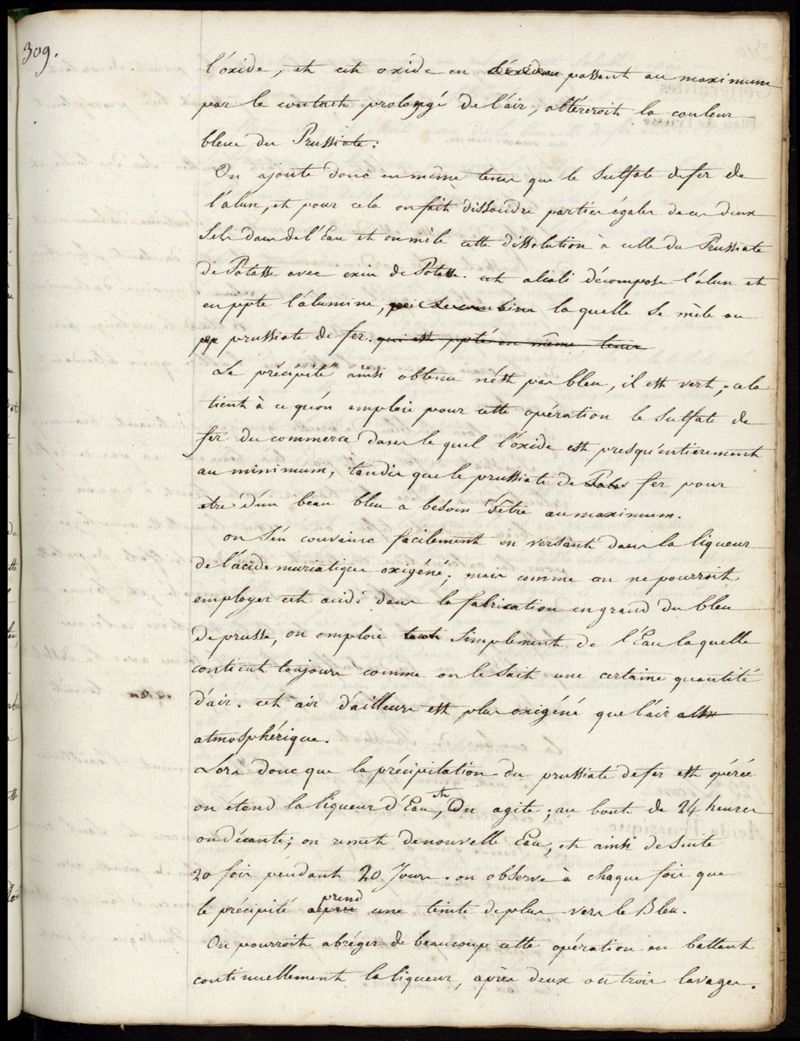 309.
l'oxide, et cet oxide en passant au maximum
par le contact prolongé de l'air, altéreroit la couleur
bleue du Prussiate.
On ajoute donc en même tems que le Sulfate de fer de
l'alun, et pour cela on fait dissoudre parties égales de ces deux
Sels dans de l'Eau et on mêle cette dissolution à celle du Prussiate
de Potasse avec excès de Potasse. cet alcali décompose l'alun et
en ppte l'alumine, qui se combine la quelle se mêle au
prussiate de fer. qui est ppté en même tems
Le précipité ainsi obtenu n'est pas bleu, il est vert; cela
tient à ce qu'on emploie pour cette opération le Sulfate de
fer du commerce dans le quel l'oxide est presqu'entierement
au minimum, tandis que le prussiate de Potas fer pour
etre d'un beau bleu a besoin d'être au maximum.
on s'en convainc facilement en versant dans la liqueur
de l'acide muriatique oxigéné. mais comme on ne pourroit
employer cet acide dans la fabrication en grand du bleu
de prusse, on emploie tout simplement de l'Eau laquelle
contient toujours comme on le sait une certaine quantité
d'air. cet air d'ailleurs est plus oxigéné que l'air
atmosphérique.
Lors donc que la précipitation du prussiate de fer est opérée
on étend la liqueur d'Eau, et on agite; au bout de 24 heures
on décante; on remet de nouvelle Eau, et ainsi de suite
20 fois pendant 20 Jours. on observe à chaque fois que
le précipité prend une teinte de plus vers le Bleu.
On pourroit abréger de beaucoup cette opération en battant
continuellement la liqueur, après deux ou trois lavages.